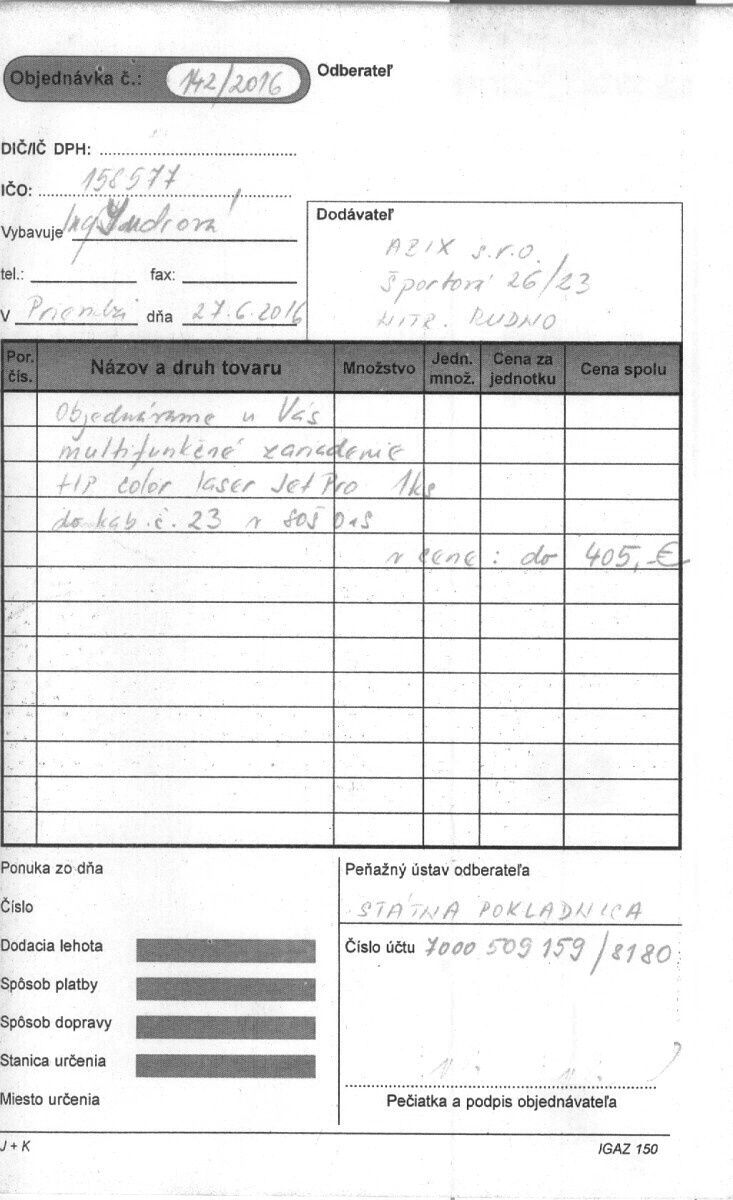 Objednávka č.: 142/2016
Odberateľ
DIČ/IČ DPH:
IČO: 158577
Vybavuje Ing.
tel.: fax:
V dňa 27.6.2016
Dodávateľ
AZIX s.r.o.
Športová 26/23
NITR. RUDNO
Por. čís. Názov a druh tovaru Množstvo Jedn. množ. Cena za jednotku Cena spolu
Objednávame u Vás
multifunkčné zariadenie
HP color laser Jet Pro 1ks
do kab. č. 23 v SOŠ
v cene: do 405,-€
Ponuka zo dňa
Číslo
Dodacia lehota
Spôsob platby
Spôsob dopravy
Stanica určenia
Miesto určenia
Peňažný ústav odberateľa
ŠTÁTNA POKLADNICA
Číslo účtu 7000 509 159/8180
Pečiatka a podpis objednávateľa
J + K
IGAZ 150